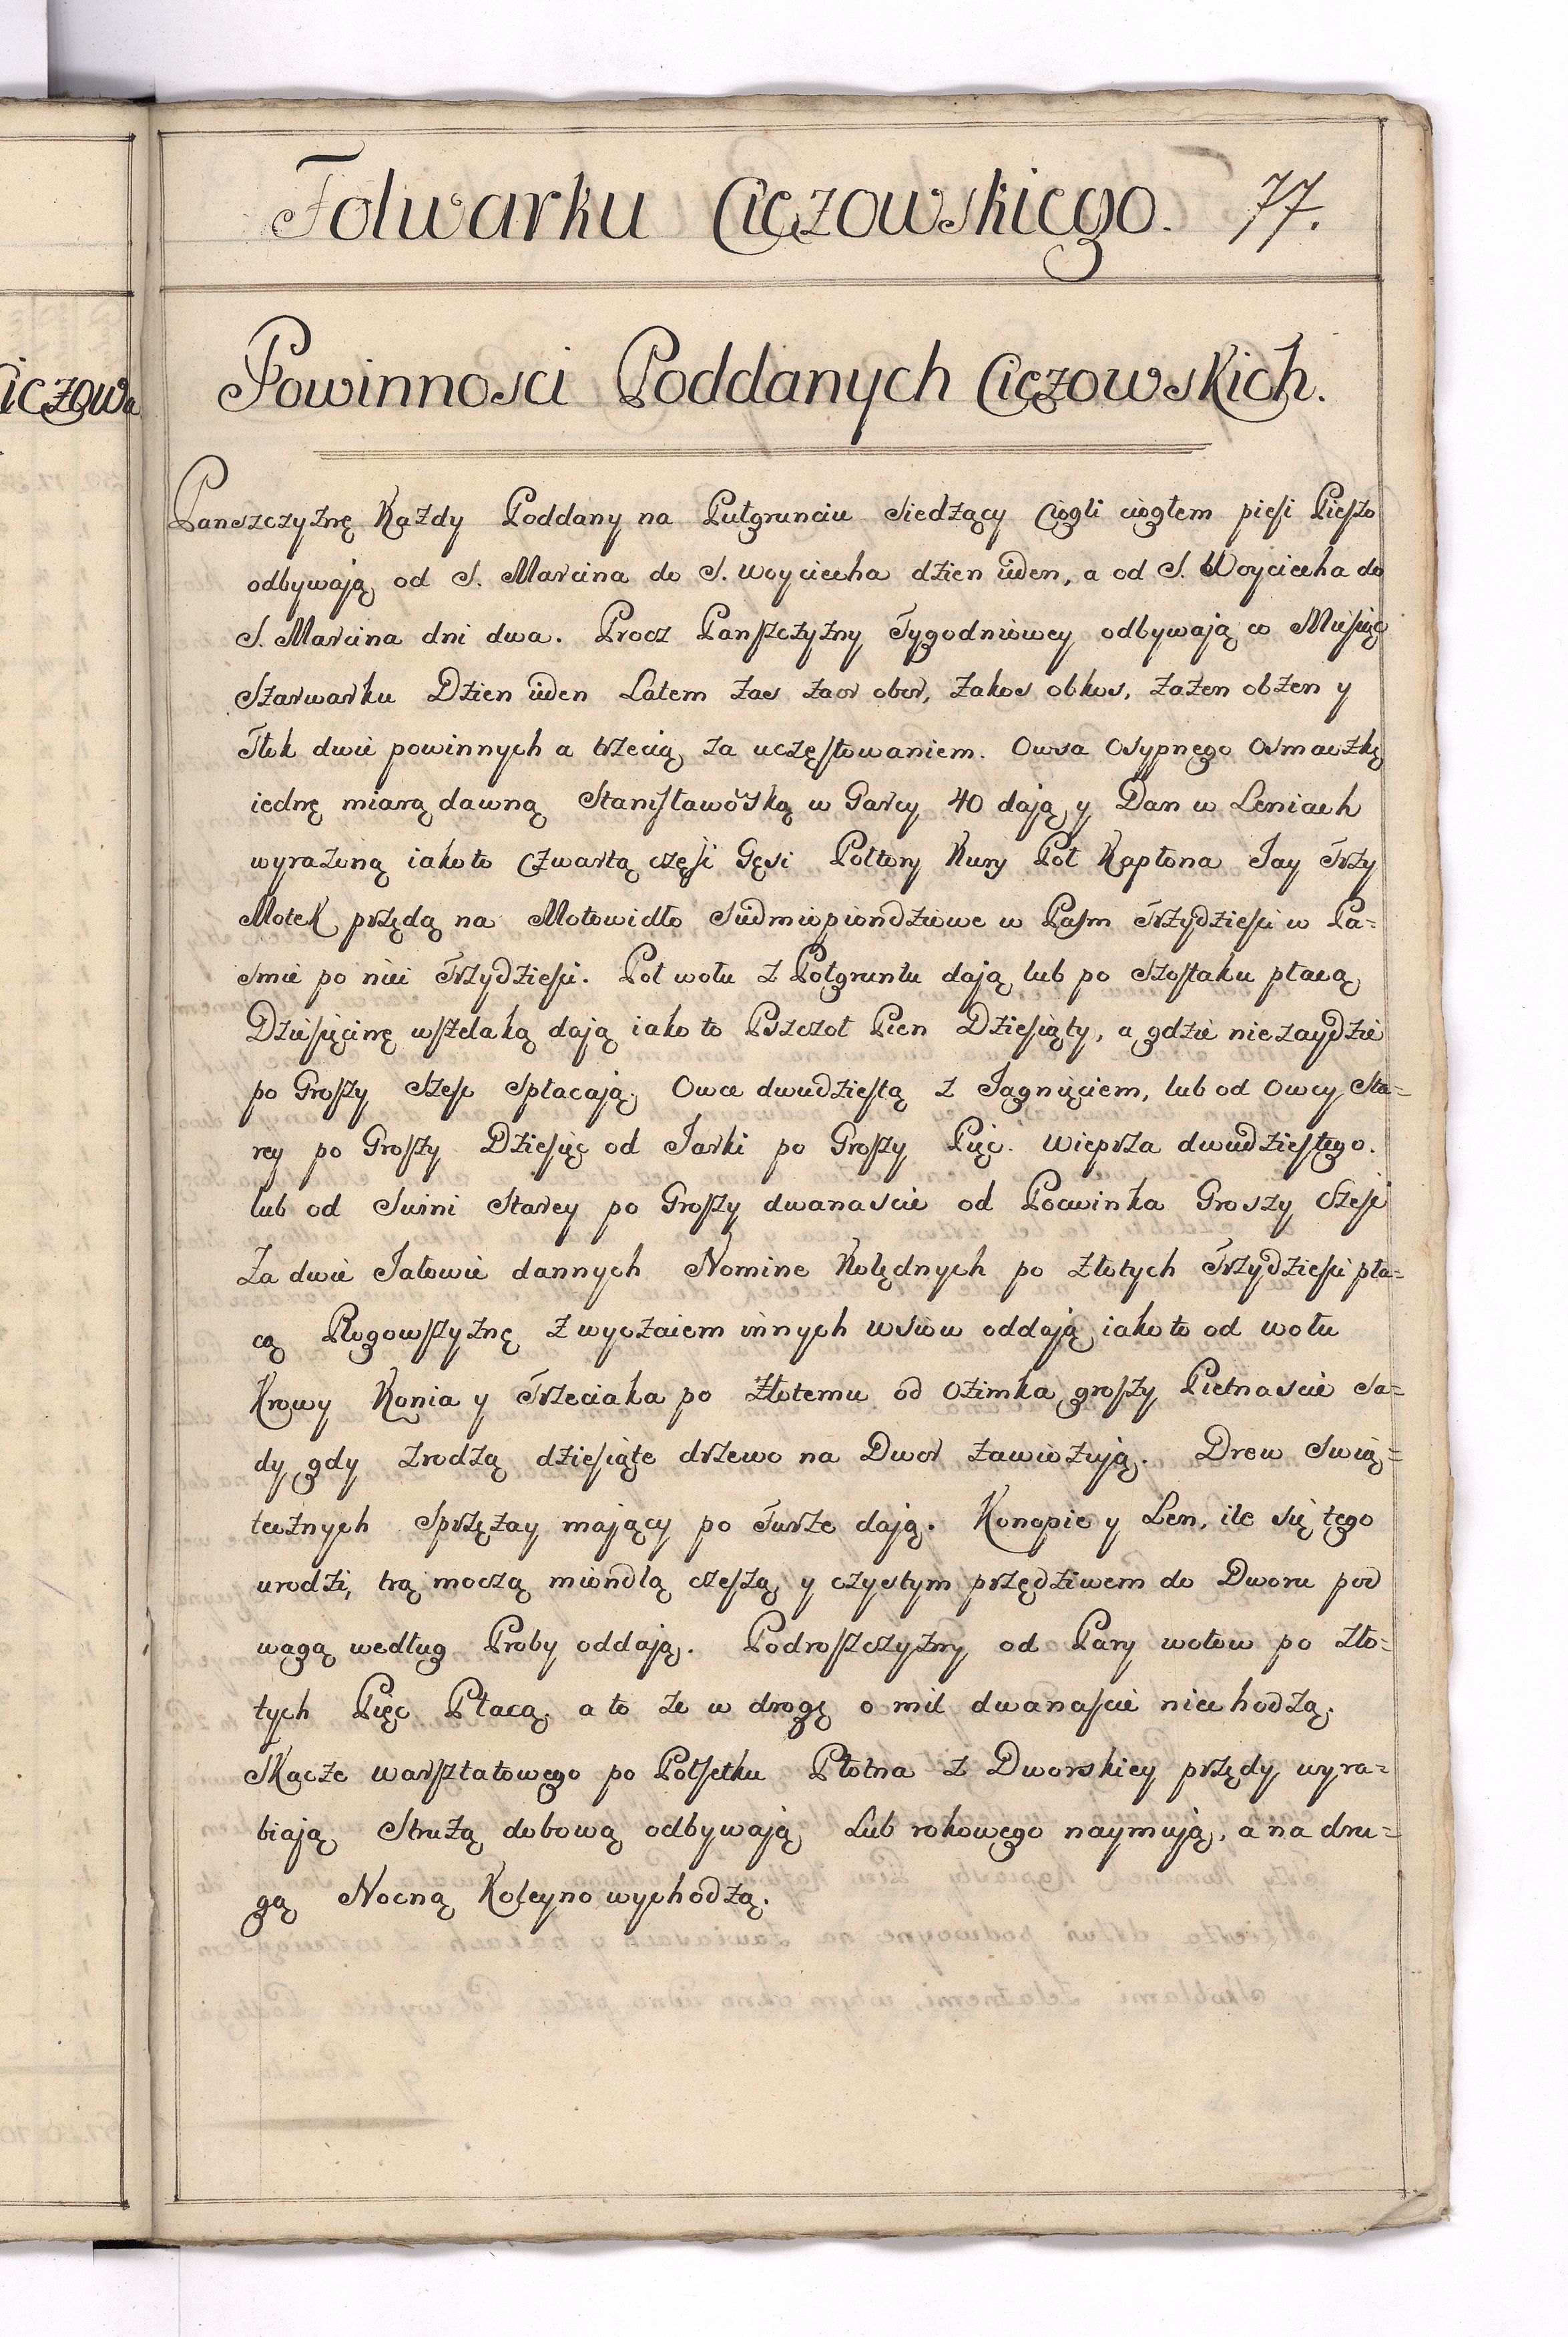 Folwarku Cięzowskiego. 77.
iczowa
Powinnosci Poddanych Cięzowskich.
Panszczyznę Kazdy Poddany na Pułgrunciu siedzący Ciągli ciągłem piesi Pieszo
odbywają od S. Marcina do S. Woyciecha dzien ieden, a od S. Woyciecha do
S. Marcina dni dwa. Procz Panszczyzny Tygodniowey odbywają co Miesiąc
Szarwarku Dzien ieden Latem zas zaor obor, zakos obkos, zazen obzen y
Tłok dwie powinnych a trzecią za uczęstowaniem. Owsa Osypnego Osmaczkę
iednę miarą dawną Stanisławoską w Garcy 40 dają y Dan w Leniach
wyrazoną iako to Czwartą częsc Gęsi Połtory Kury Poł Kapłona Jay Trzy
Motek przędą na Motowidło Siedmiopiondziowe w Pasm Trzydziesci w Pa=
smie po nici Trzydziesci. Poł wołu z Połgruntu dają lub po Szostaku płacą
Dziesięcinę wszelaką dają iako to Pszczoł Pien Dziesiąty, a gdzie nie zaydzie
po Groszy Szesc Spłacają. Owce dwudziestą z Jagnięciem, lub od Owcy Sta=
rey po Groszy Dziesięc od Jarki po Groszy Pięc. Wieprza dwudziestego.
lub od Swini Starey po Groszy dwanascie od Pocwinka Groszy Szesc
Za dwie Jałowic dannych Nomine Kolędnych po Złotych Trzydziesci pła=
cą Rogowszyznę Zwyczaiem innych wsiow oddają iako to od wołu
Krowy Konia y Trzeciaka po Złotemu od Ozimka groszy Pietnascie Sa=
dy gdy zrodzą dziesiąte drzewo na Dwor zawiozują. Drew Swią=
tecznych Sprzęzay maiący po Furze dają. Konopie y Len, ile się tego
urodzi, trą moczą miondlą czeszą y czystym przędziwem do Dworu pod
wagą według Proby oddają. Podroszczyzny od Pary wołow po zło=
tych Pięc Płacą. a to ze w drogę o mil dwanascie nie chodzą.
Tkacze warsztatowego po Połsetku Płotna z Dworskiey przędy wyra=
biają Struzą dobową odbywają Lub rokowego naymują, a na dru=
gą Nocną Koleyno wychodzą.